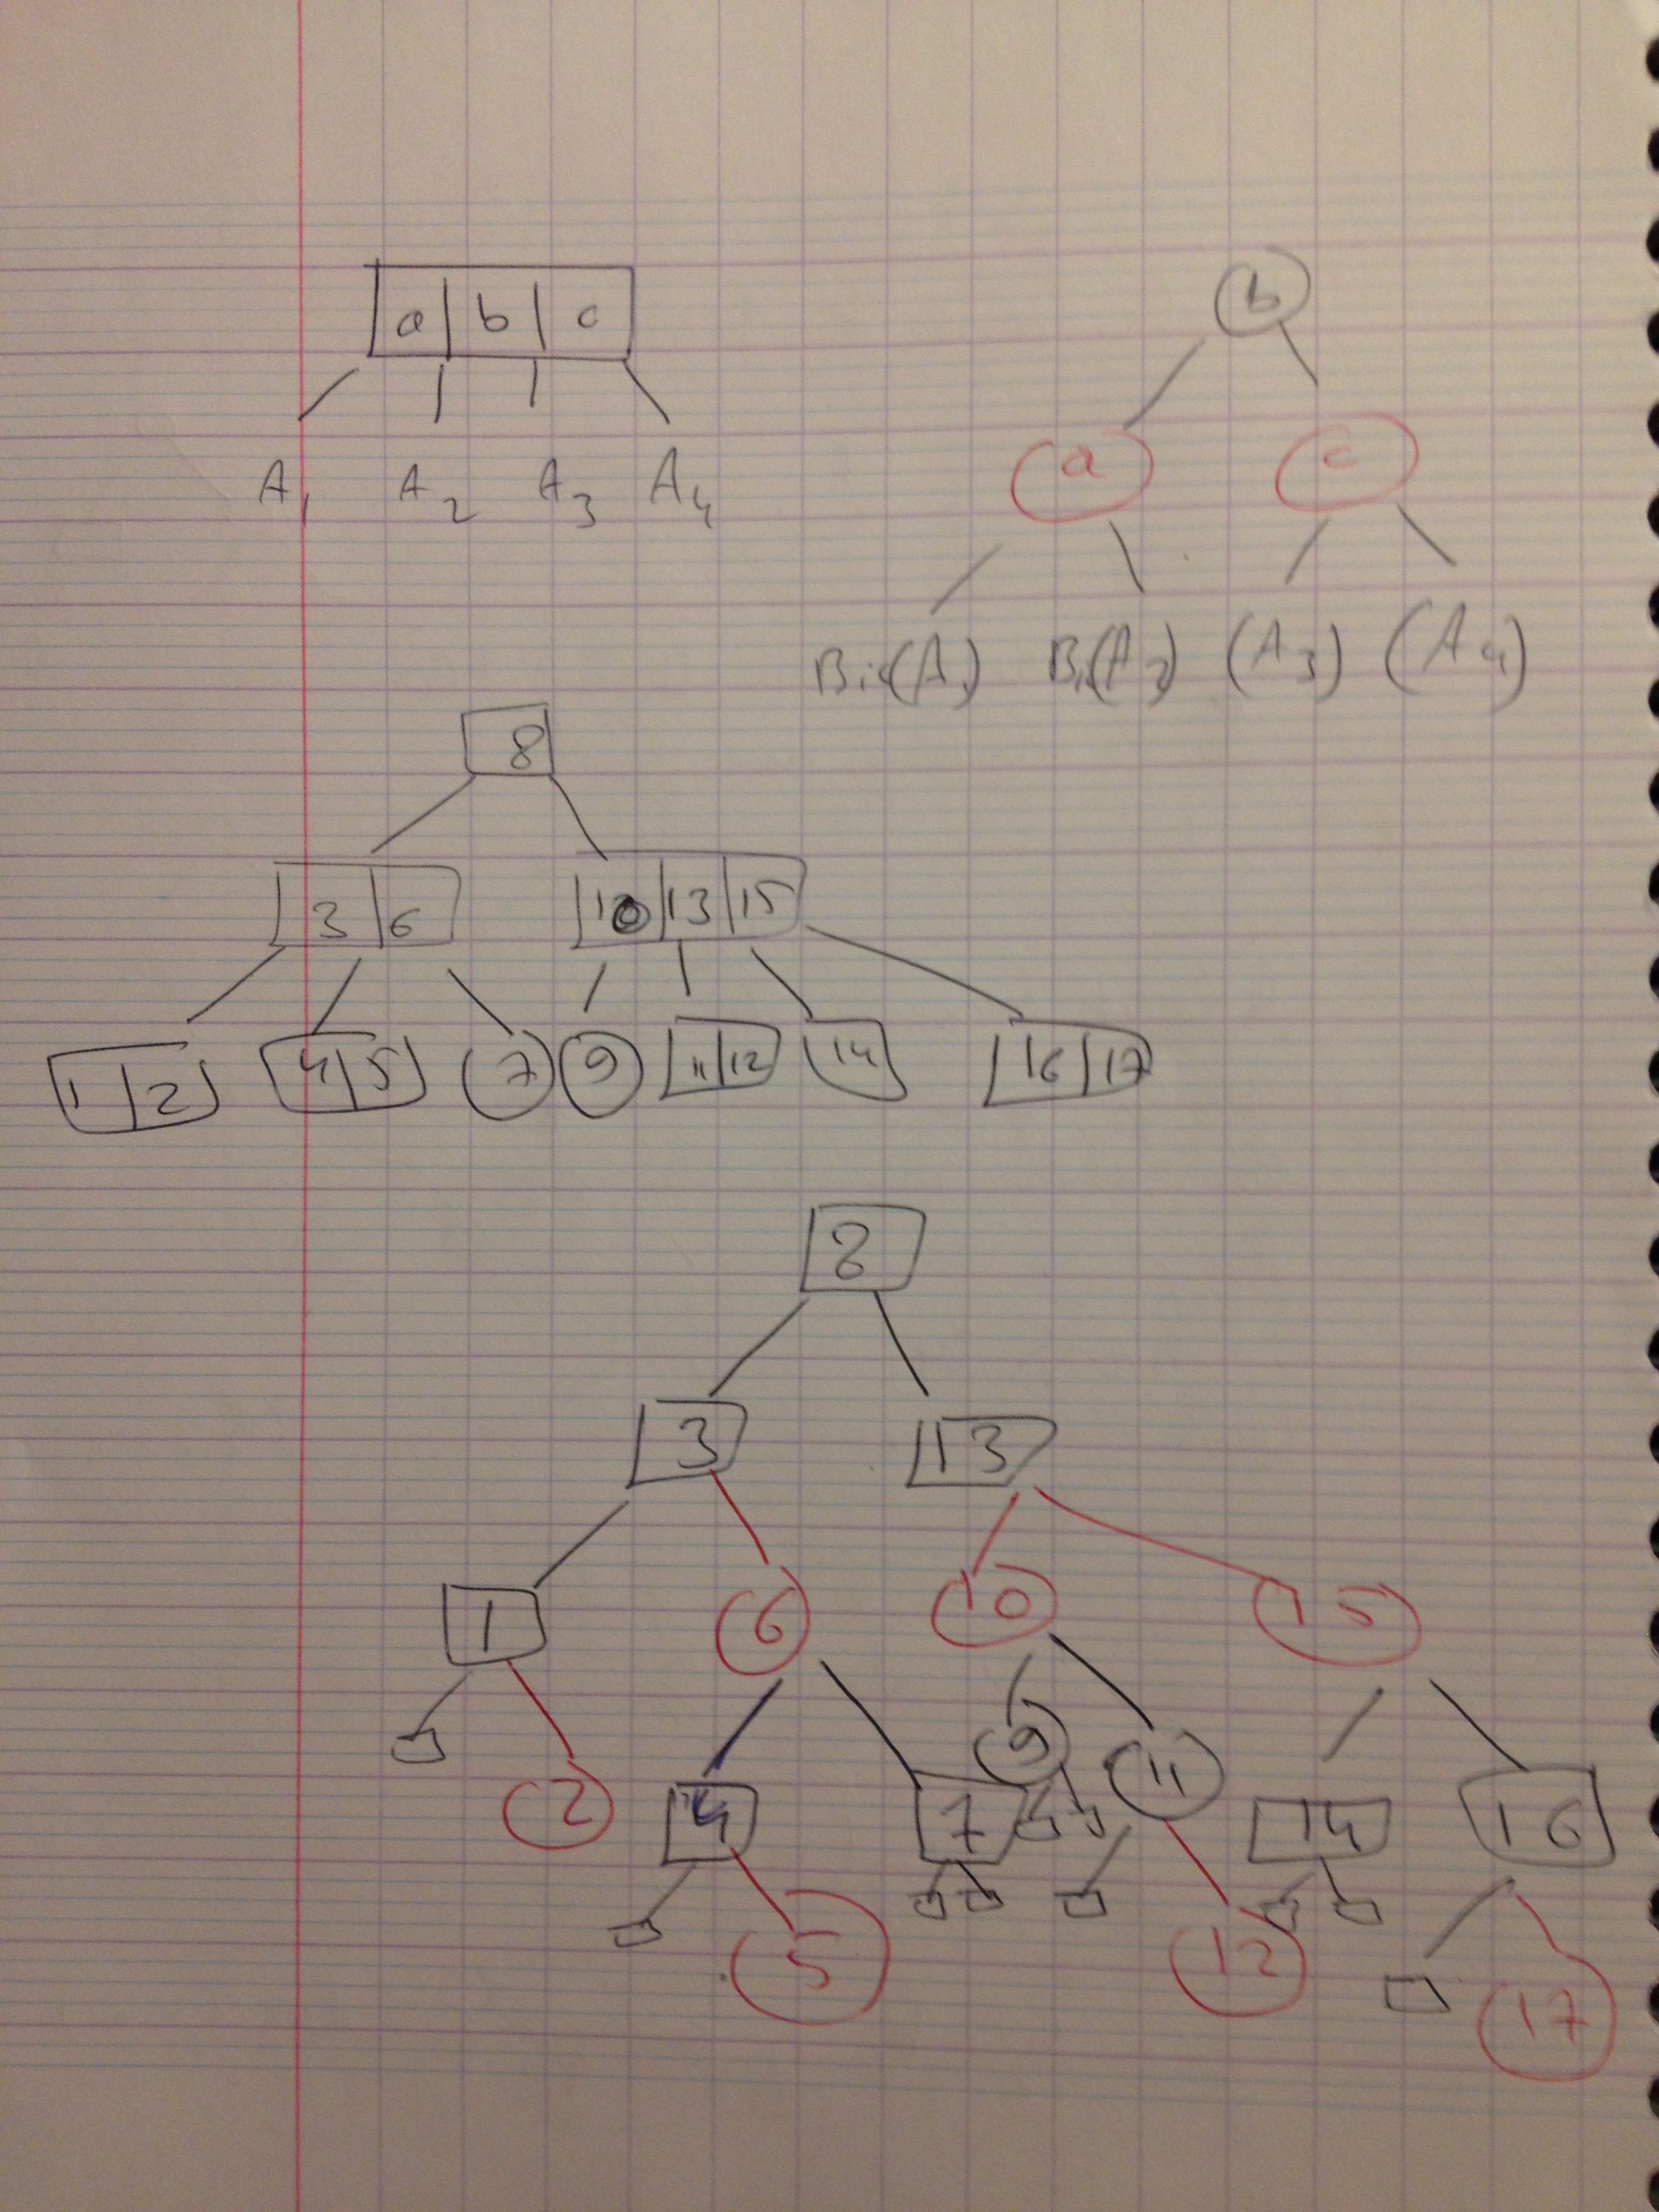 a b c
b
A1 A2 A3 A4
a c
Bic(A1) Bic(A2) (A3) (A4)
8
3 6 10 13 15
1 2 4 5 7 9 11 12 14 16 17
8
3 13
1 6 10 15
2 4 7 9 11 14 16
5 12 17